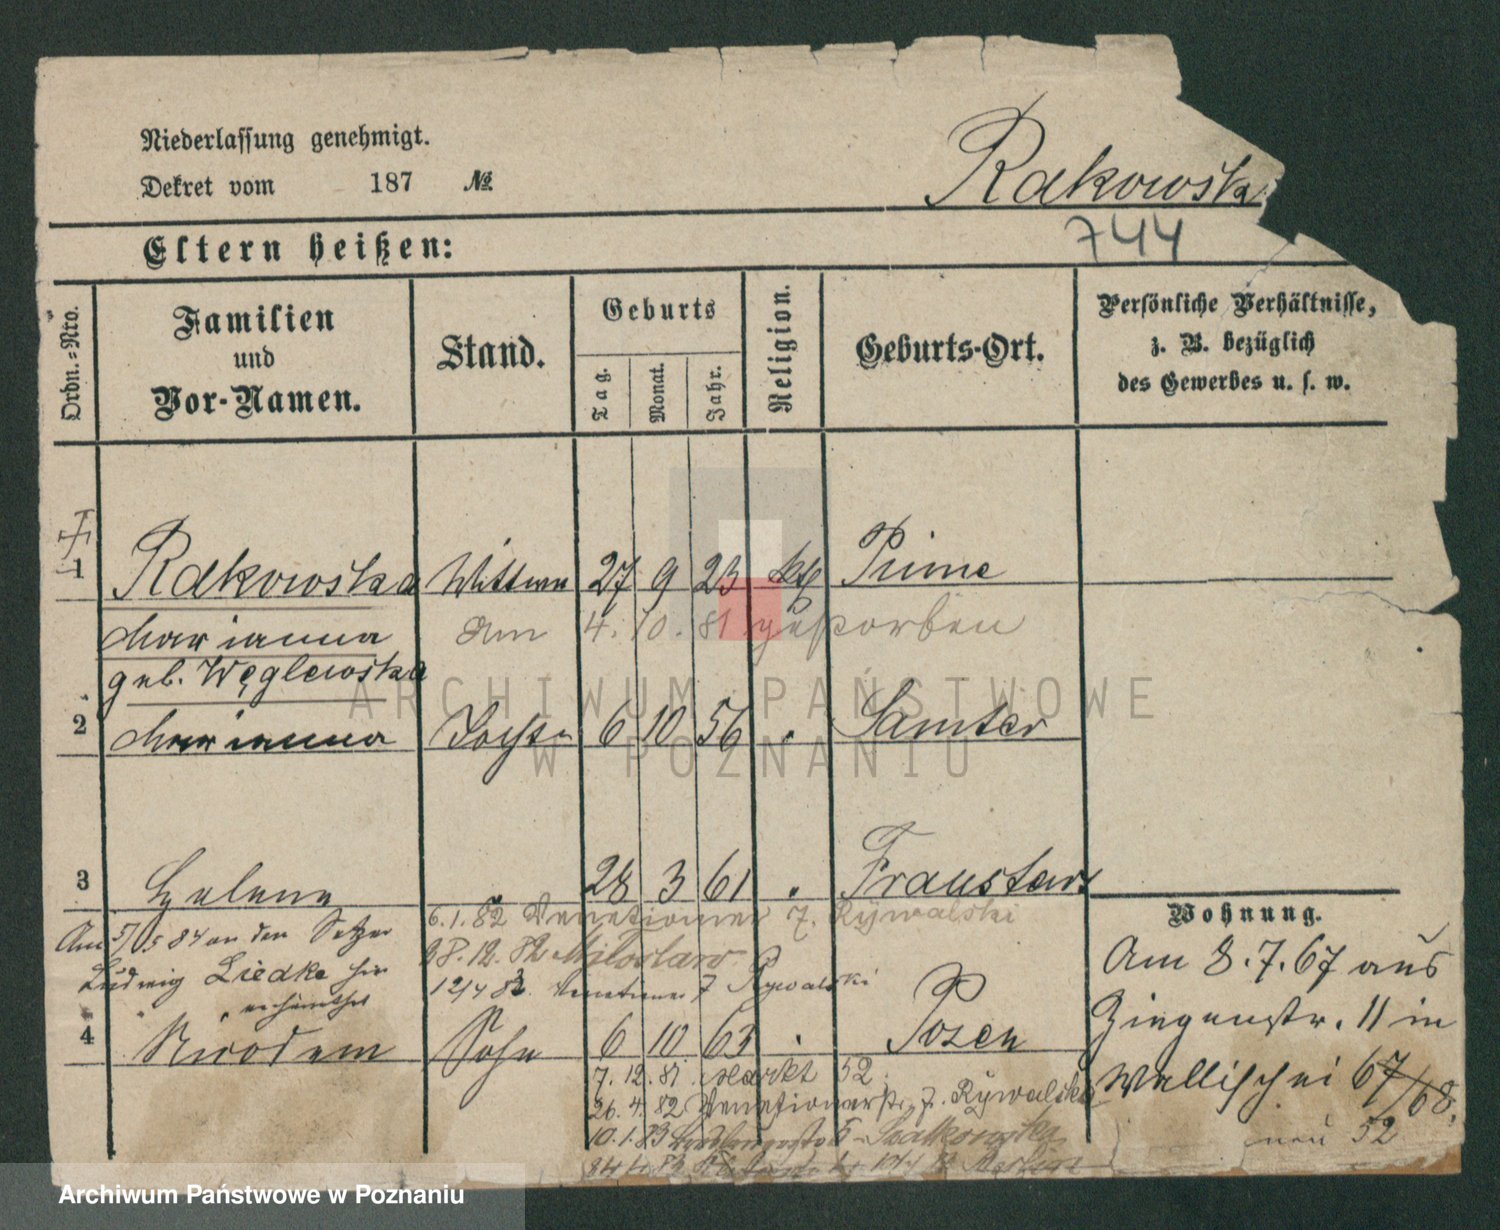 Niederlassung genehmigt.
Dekret vom 187 №
Rakowska
744
Eltern heißen:
Ordn.=Nro.
Familien
und
Vor-Namen.
Stand.
Geburts
Tag.
Monat.
Jahr.
Religion.
Geburts-Ort.
Persönliche Verhältnisse,
z. B. bezüglich
des Gewerbes u. s. w.
1 Rakowska Wittwe 27 9 23 kth Prime
Marianna Am 4. 10. 81 gestorben
geb. Węglewska
ARCHIWUM PAŃSTWOWE
W POZNANIU
2 Marianna Tochter 6 10 56 " Samter
3 Helene 28 3 61 " Fraustadt
6.1.82 Venetianer 7. Rywalski
Am 5/5 84 an den Setzer
28.12.82 Miloslaw
Ludwig Liedke hier
12/4 83. Venetianer 7 Rywalski
verheirathet
4 Nicodem Sohn 6 10 63 " Posen
7.12.81. Markt 52.
26.4.82 Venetianerstr. 7. Rywalski
10.1.83
Wohnung.
Am 8.7.67 aus
Ziegenstr. 11 in
Wallischei 67/68.
neu 52
Archiwum Państwowe w Poznaniu